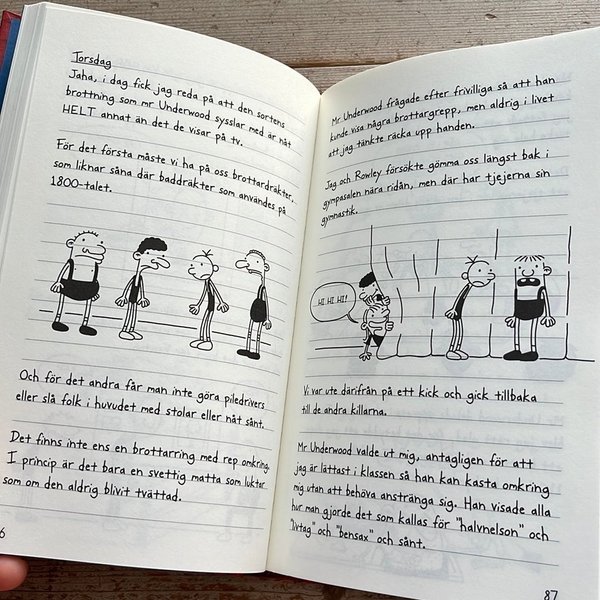 Torsdag
Jaha, i dag fick jag reda på att den sortens
brottning som mr Underwood sysslar med är nåt
HELT annat än det de visar på tv.
För det första måste vi ha på oss brottardräkter,
som liknar såna där baddräkter som användes på
1800-talet.
Och för det andra får man inte göra piledrivers
eller slå folk i huvudet med stolar eller nåt sånt.
Det finns inte ens en brottarring med rep omkring.
I princip är det bara en svettig matta som luktar
som om den aldrig blivit tvättad.
6
Mr Underwood frågade efter frivilliga så att han
kunde visa några brottargrepp, men aldrig i livet
att jag tänkte räcka upp handen.
Jag och Rowley försökte gömma oss längst bak i
gympasalen nära ridån, men där har tjejerna sin
gymnastik.
HI HI HI!
Vi var ute därifrån på ett kick och gick tillbaka
till de andra killarna.
Mr Underwood valde ut mig, antagligen för att
jag är lättast i klassen så han kan kasta omkring
mig utan att behöva anstränga sig. Han visade alla
hur man gjorde det som kallas för "halvnelson" och
"livtag" och "bensax" och sånt.
87